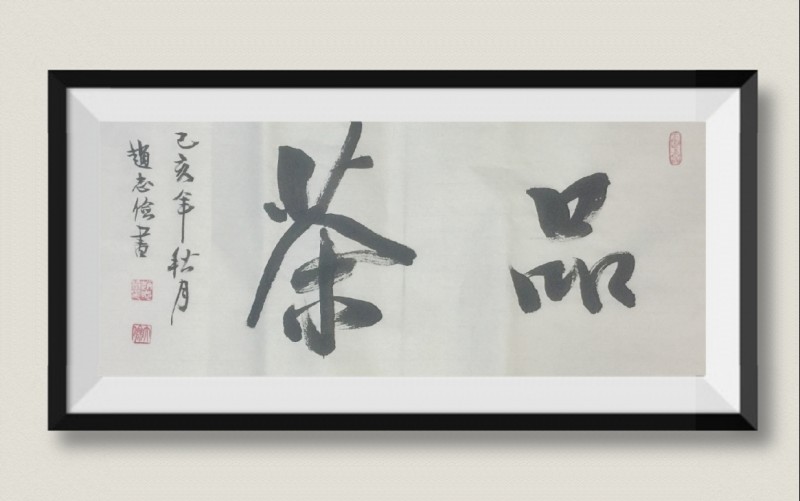 品茶
己亥年秋月
趙志儉書